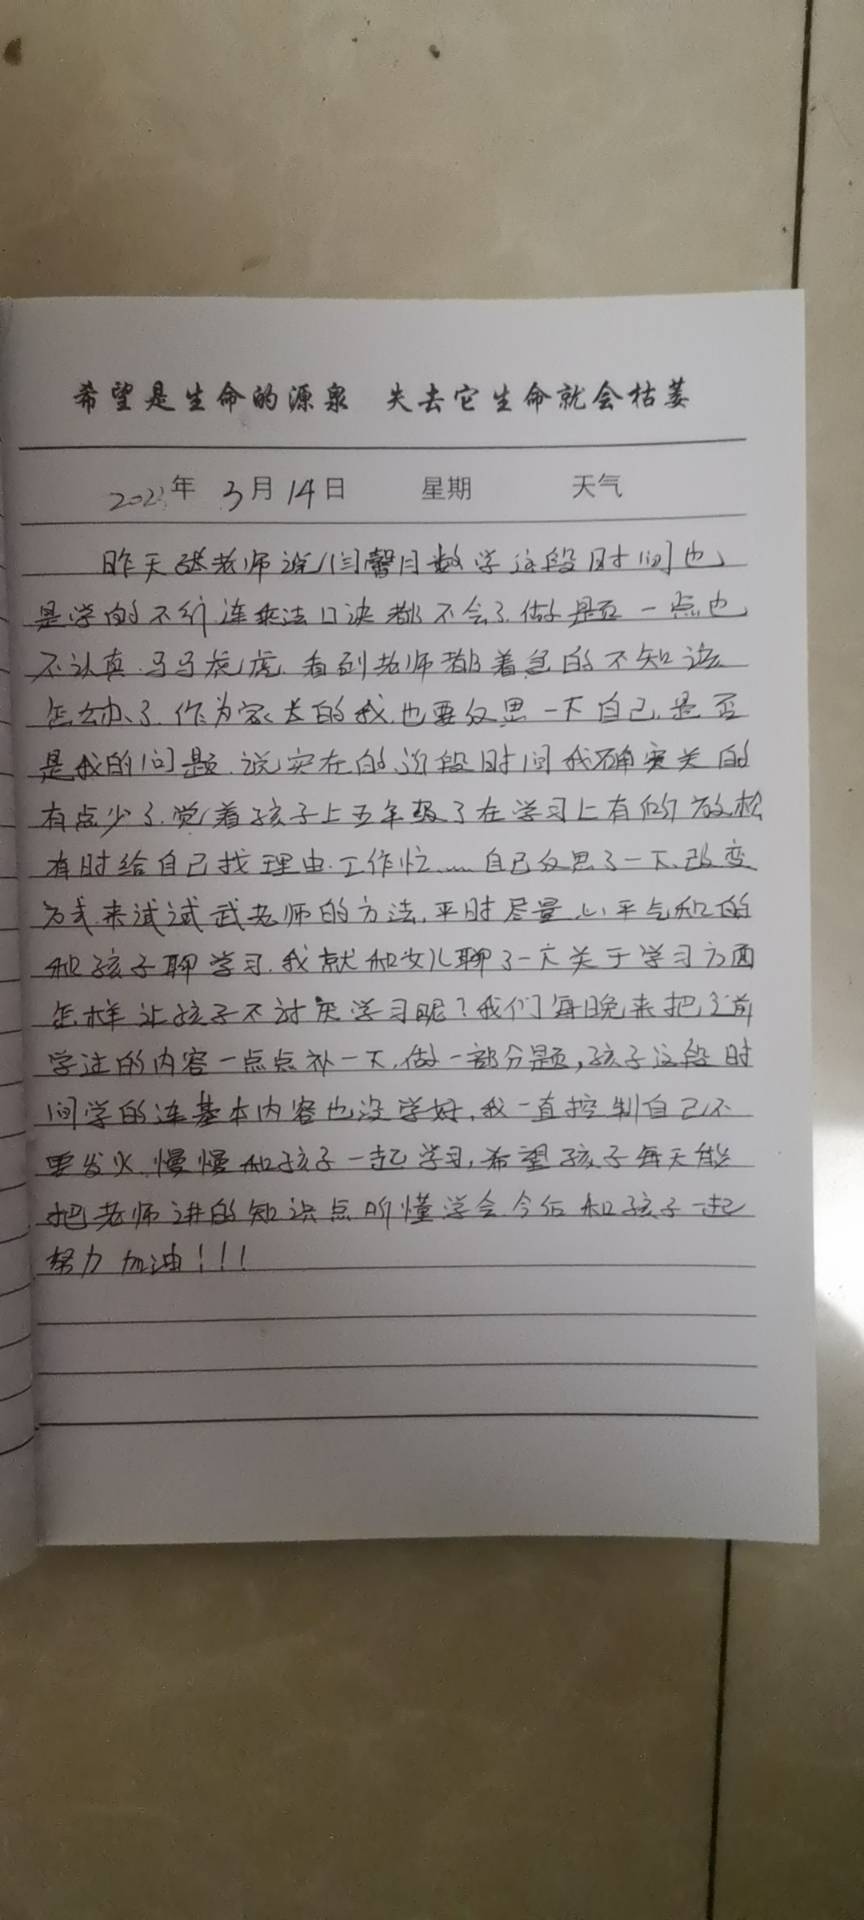 希望是生命的源泉 失去它生命就会枯萎
202 年 3月14日 星期 天气
昨天张老师说闫馨月数学这段时间也
是学的不行,连乘法口决都不会了.做题一点也
不认真.马马虎虎.看到老师都着急的不知该
怎么办了.作为家长的我.也要反思一下自己.是否
是我的问题.说实在的这段时间我确实关的
有点少了.觉着孩子上五年级了在学习上有所放松
有时给自己找理由.工作忙......自己反思了一下.改变
方式.来试试武老师的方法.平时尽量心平气和的
和孩子聊学习.我就和女儿聊了一下关于学习方面
怎样让孩子不讨厌学习呢?我们每晚来把之前
学过的内容一点点补一下.做一部分题,孩子这段时
间学的连基本内容也没学好.我一直控制自己不
要发火.慢慢和孩子一起学习,希望孩子每天能
把老师讲的知识点听懂学会.今后和孩子一起
努力加油!!!